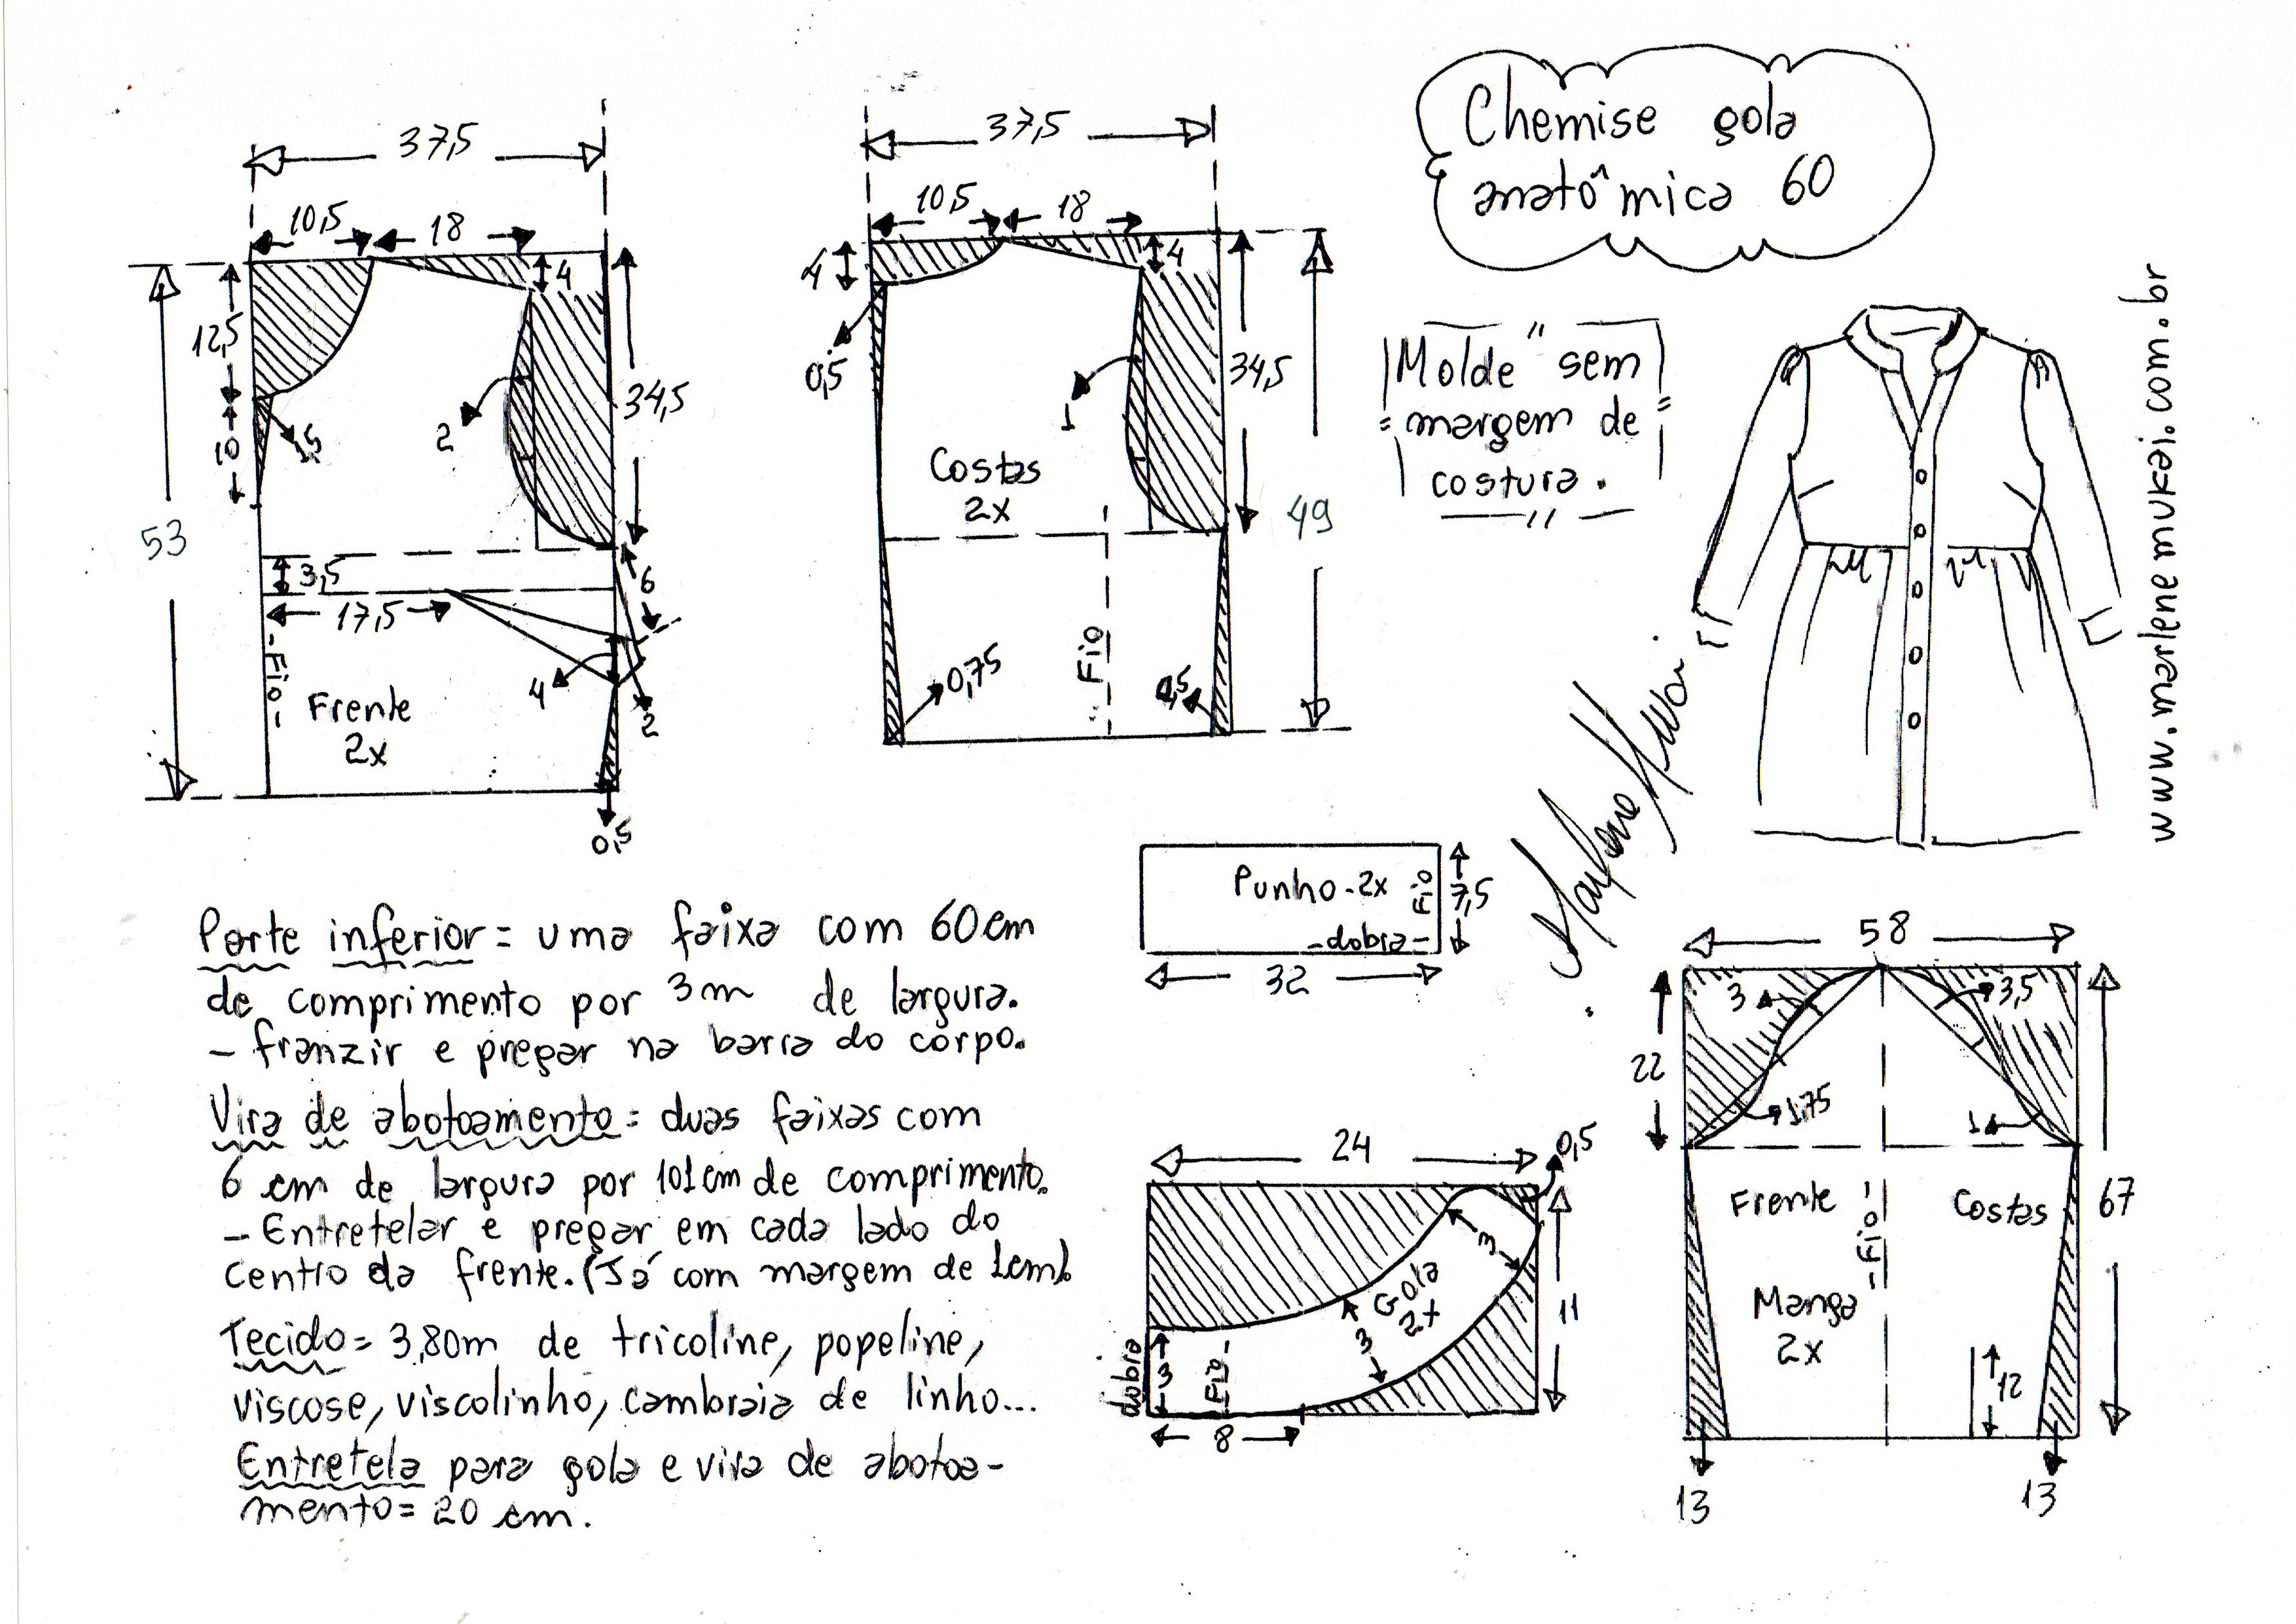 37,5
10,5
18
4
12,5
1,5
10
2
34,5
53
3,5
17,5
6
4
2
-Fio-
Frente
2x
0,5
37,5
10,5
18
4
4
0,5
1
34,5
49
Costas
2x
Fio
0,75
0,5
Chemise gola
anatômica 60
Molde sem
margem de
costura.
www.marlenemukai.com.br
Marlene Mukai
Punho-2x
Fio
7,5
-dobra-
32
Parte inferior = uma faixa com 60cm
de comprimento por 3m de largura.
- franzir e pregar na barra do corpo.
Vira de abotoamento = duas faixas com
6 cm de largura por 101cm de comprimento.
- Entretelar e pregar em cada lado do
centro da frente. (Já com margem de 1cm).
Tecido = 3,80m de tricoline, popeline,
viscose, viscolinho, cambraia de linho...
Entretela para gola e vira de abotoa-
mento = 20 cm.
24
0,5
3
Gola
2x
3
11
dobra
3
Fio-
8
58
3
3,5
22
1,75
1
Frente
Costas
67
-Fio-
Manga
2x
12
13
13